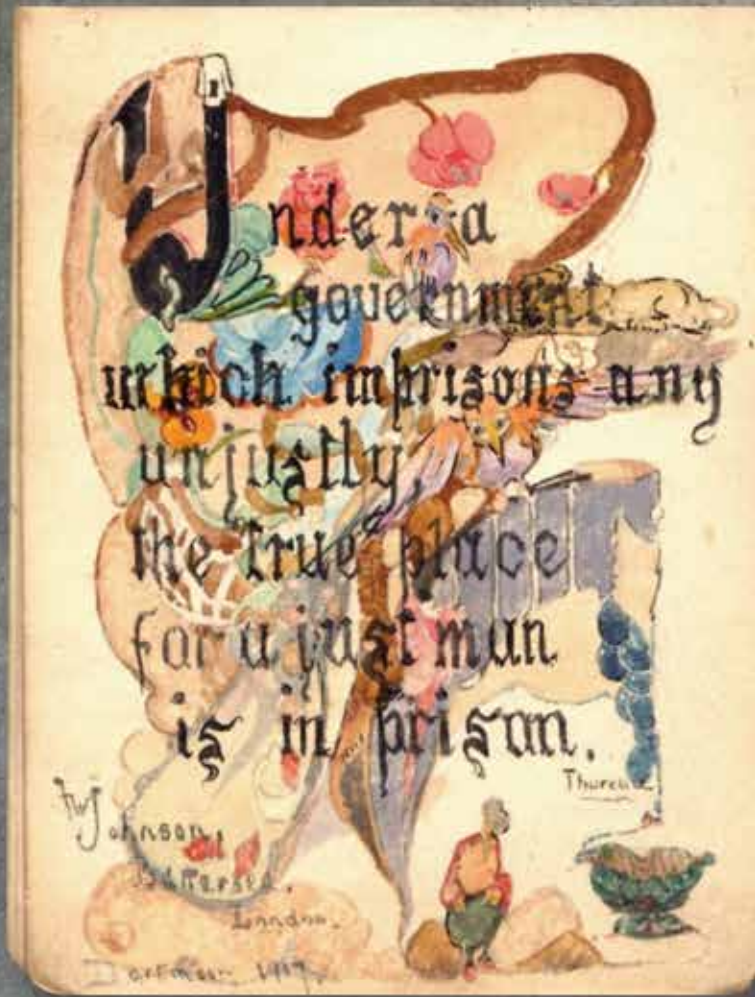 Under a
government
which imprisons any
unjustly,
the true place
for a just man
is in prison.
Thoreau
HW Johnson,
Battersea.
London.
Dartmoor 1917.